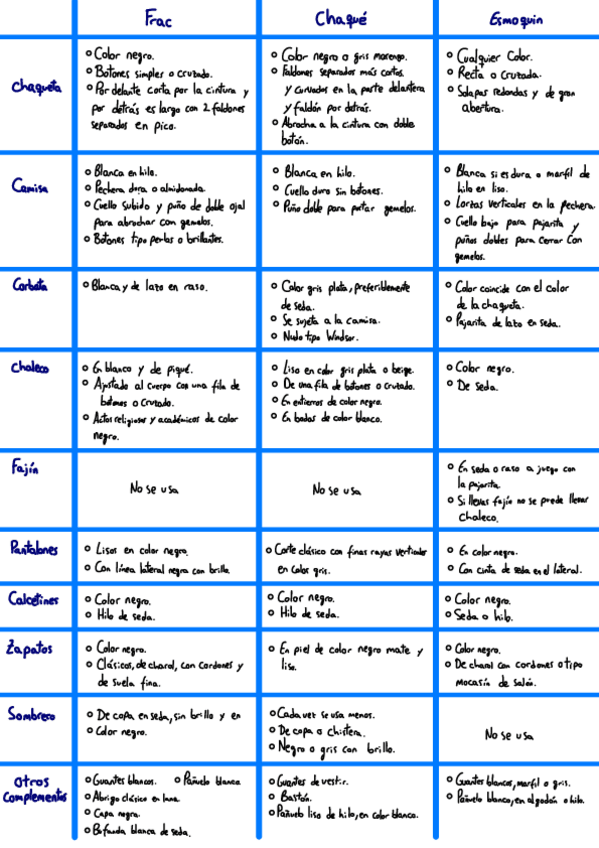 Frac
Chaqué
Esmoquin
Chaqueta
Color negro.
Botones simples o cruzado.
Por delante corta por la cintura y
por detrás es largo con 2 faldones
separados en pico.
Color negro o gris marengo.
Faldones separados más cortos
y curvados en la parte delantera
y faldón por detrás.
Abrocha a la cintura con doble
botón.
Cualquier color.
Recta o cruzada.
Solapas redondas y de gran
abertura.
Camisa
Blanca en hilo.
Pechera dura o almidonada.
Cuello subido y puño de doble ojal
para abrochar con gemelos.
Botones tipo perlas o brillantes.
Blanca en hilo.
Cuello duro sin botones.
Puño doble para portar gemelos.
Blanca si es dura o marfil de
hilo en liso.
Lorzas verticales en la pechera.
Cuello bajo para pajarita y
puños dobles para cerrar con
gemelos.
Corbata
Blanca y de lazo en raso.
Color gris plata, preferiblemente
de seda.
Se sujeta a la camisa.
Nudo tipo Windsor.
Color coincide con el color
de la chaqueta.
Pajarita de lazo en seda.
Chaleco
En blanco y de piqué.
Ajustado al cuerpo con una fila de
botones o cruzado.
Actos religiosos y académicos de color
negro.
Liso en color gris plata o beige.
De una fila de botones o cruzado.
En entierros de color negro.
En bodas de color blanco.
Color negro.
De seda.
Fajín
No se usa
No se usa
En seda o raso a juego con
la pajarita.
Si llevas fajín no se puede llevar
chaleco.
Pantalones
Lisos en color negro.
Con línea lateral negra con brillo
Corte clásico con finas rayas verticales
en color gris.
En color negro.
Con cinta de seda en el lateral.
Calcetines
Color negro.
Hilo de seda.
Color negro.
Hilo de seda.
Color negro.
Seda o hilo.
Zapatos
Color negro.
Clásicos, de charol, con cordones y
de suela fina.
En piel de color negro mate y
lisa.
Color negro.
De charol con cordones o tipo
mocasín de salón.
Sombrero
De copa en seda, sin brillo y en
Color negro.
Cada vez se usa menos.
De copa o chistera.
Negro o gris con brillo.
No se usa
Otros
complementos
Guantes blancos. Pañuelo blanco
Abrigo clásico en lana.
Capa negra.
Bufanda blanca de seda.
Guantes de vestir.
Bastón.
Pañuelo liso de hilo, en color blanco.
Guantes blancos, marfil o gris.
Pañuelo blanco, en algodón o hilo.